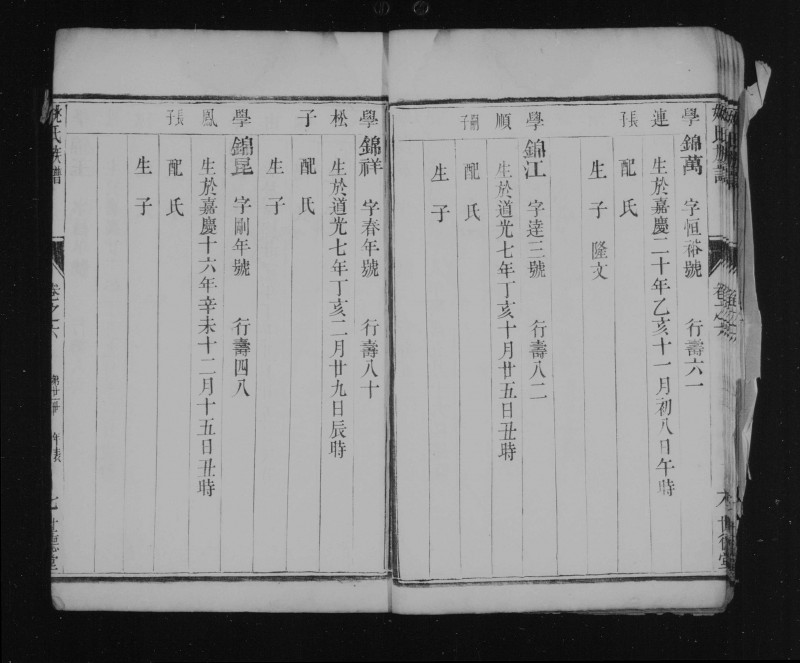 學錦萬 字恒裕號 行壽六一
連 生於嘉慶二十年乙亥十一月初八日午時
長子 配氏
生子 隆文
學錦江 字達三號 行壽八二
順 生於道光七年丁亥十月廿五日丑時
嗣子 配氏
生子
學錦祥 字春年號 行壽八十
松 生於道光七年丁亥二月廿九日辰時
子 配氏
生子
學錦昆 字剛年號 行壽四八
鳳 生於嘉慶十六年辛未十二月十五日丑時
長子 配氏
生子
氏族譜 卷之六 年表 七 世德堂